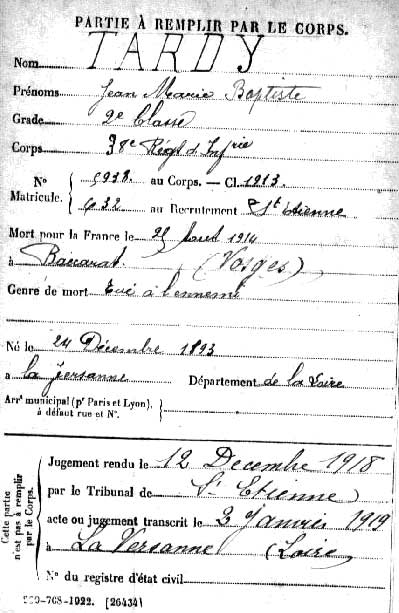 PARTIE À REMPLIR PAR LE CORPS.
Nom TARDY
Prénoms Jean Marie Baptiste
Grade 2e Classe
Corps 38e Régt d'Infrie
N° Matricule. 5938 au Corps. — Cl. 1913.
632 au Recrutement St Etienne
Mort pour la France le 25 Août 1914
à Baccarat. (Vosges)
Genre de mort Tué à l'ennemi
Né le 24 Décembre 1893
à la Versanne Département de la Loire
Arrt municipal (pr Paris et Lyon), à défaut rue et N°.
Cette partie n'est pas à remplir par le Corps.
Jugement rendu le 12 Decembre 1918
par le Tribunal de St Etienne
acte ou jugement transcrit le 3 Janvier 1919
à La Versanne (Loire)
N° du registre d'état civil
-708-1922. [26434]